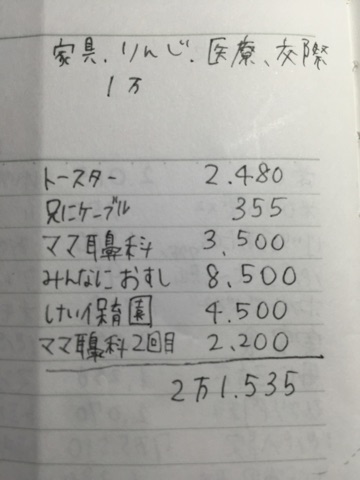 家具、りんじ、医療、交際
1万
トースター 2.480
兄にケーブル 355
ママ耳鼻科 3,500
みんなにおすし 8,500
けい保育園 4.500
ママ耳鼻科2回目 2,200
2万1.535